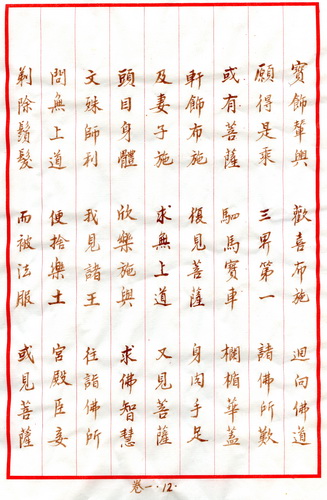 寶飾輦輿 歡喜布施 迴向佛道
願得是乘 三界第一 諸佛所歎
或有菩薩 駟馬寶車 欄楯華蓋
軒飾布施 復見菩薩 身肉手足
及妻子施 求無上道 又見菩薩
頭目身體 欣樂施與 求佛智慧
文殊師利 我見諸王 往詣佛所
問無上道 便捨樂土 宮殿臣妾
剃除鬚髮 而被法服 或見菩薩
卷一·12·